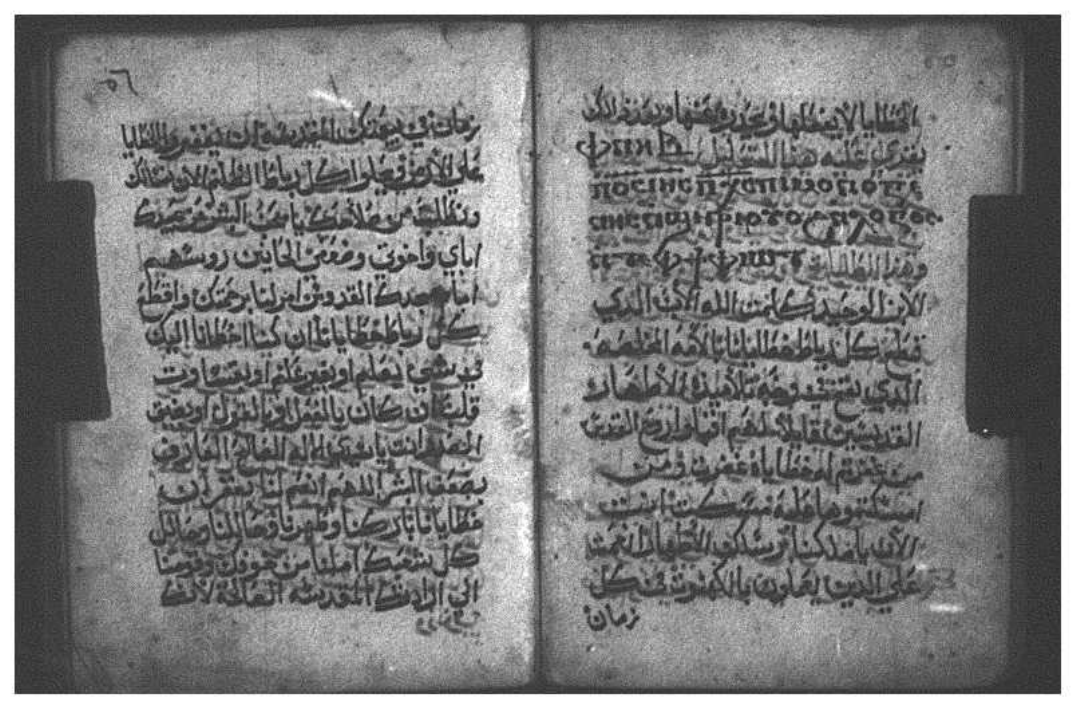 الخطايا لا يفعلها او يعود يفعلها وبعد ذلك
يقرى عليه هذا التحليل ⲫⲛⲏⲃ
ⲡⲟⲥ ⲓⲏⲥ ⲡⲭⲥ ⲡⲓⲙⲟⲛⲟⲅⲉ
ⲛⲏⲥ ⲛϣⲏⲣⲓ ⲟⲩⲟϩ ⲛⲗⲟⲅⲟⲥ
ⲛⲧⲉ ⲫϯ ⲫⲓⲱⲧ
وهذا
الابن الوحيد كلمت الله الاب الذي
قطع كل رباط خطايانا بالامه المخلصه
الذي نفخ في وجه تلاميذه الاطهار
القديسين قايلا لهم اقبلوا روح القدس
من غفرتم له خطاياه غفرت ومن
امسكتموها عليه مسكت انت
الان يا ملكنا برسلك الاطهار انعمت
علي الذين يعملون بالكهنوت في كل
زمان
٥٦
زمان في بيعتك المقدسه ان يغفروا الخطايا
علي الارض ويحلوا كل رباط الظلم الان نسالك
ونطلب من صلاحك يا محب البشر عن عبيدك
اباي واخوتي وضعفي الحانين روسهم
امام مجدك القدوس امر لنا برحمتك واقطع
كل رباط خطايانا ان كنا اخطانا اليك
في شي بعلم او بغير علم او بقساوت
قلب ان كان بالفعل او بالقول او بصغر
انت يا سيدي الاله العالم العارف
بضعف البشر اللهم انعم لنا بغفران
خطايانا باركنا وطهرنا وحاللنا وحالل
كل شعبك املنا من خوفك وقومنا
الي ارادتك المقدسه الصالحة لانك